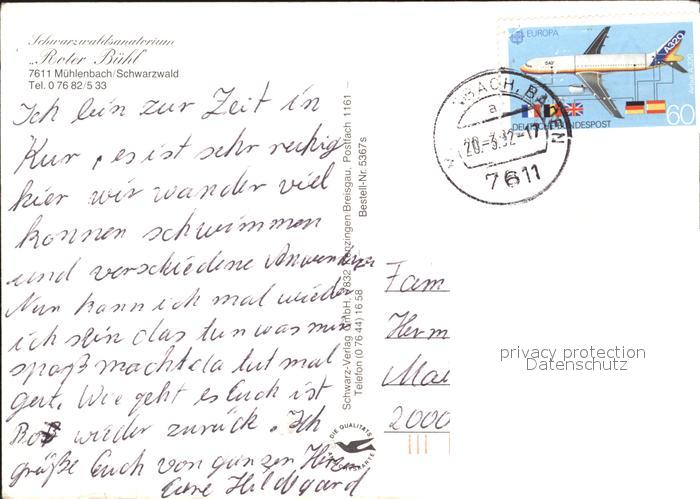 Schwarzwaldsanatorium
„Roter Bühl"
7611 Mühlenbach/Schwarzwald
Tel. 0 76 82/5 33
Ich bin zur Zeit in
Kur, es ist sehr ruhig
hier wir wander viel
können schwimmen
und verschiedene Anwendungen
Nun kann ich mal wieder
ich sein das tun was mir
spaß macht da tut mal
gut. Wie geht es Euch ist
wieder zurück. Ich
grüße Euch von ganzen Herzen
Eure Hildegard
Schwarz-Verlag GmbH, 7832 Kenzingen Breisgau, Postfach 1161 –
Telefon (0 76 44) 16 58
Bestell-Nr. 5367s
DIE QUALITÄTS
EUROPA
A320
Airbus A320
DEUTSCHE BUNDESPOST
60
BACH, BA
a
20.-3.92-17
7611
Fam
Herm
Mai
2000
privacy protection
Datenschutz